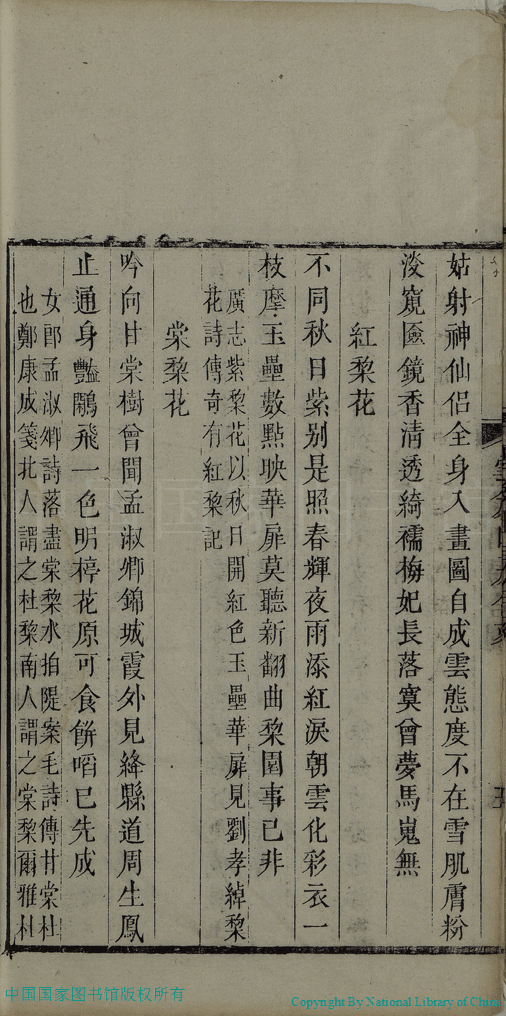 姑射神仙侶全身入畫圖自成雲態度不在雪肌膚粉
窺匳鏡香清透綺襦梅妃長落寞曾夢馬嵬無
紅棃花
不同秋日紫别是照春輝夜雨添紅淚朝雲化彩衣一
枝摩玉壘數點映華扉莫聽新翻曲棃園事已非
廣志紫棃花以秋日開紅色玉壘華扉見劉孝綽棃
花詩傳奇有紅棃記
棠棃花
吟向甘棠樹曾聞孟淑卿錦城霞外見絳縣道周生鳳
止通身豔鷳飛一色明楟花原可食餅啗已先成
女郎孟淑卿詩落盡棠棃水拍隄案毛詩傳甘棠杜
也鄭康成箋北人謂之杜棃南人謂之棠棃爾雅杜
中国国家图书馆版权所有
Copyright By National Library of China